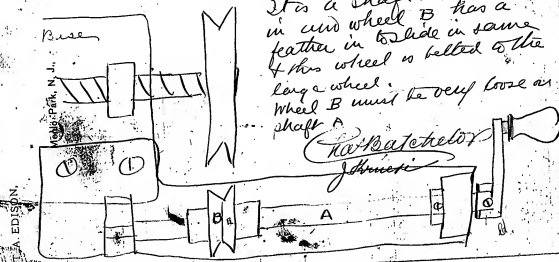 It is a shaf
in and wheel B has a
feather in to slide in same
& this wheel is belted to the
large wheel.
Wheel B must be very loose on
shaft A
Chas Batchelor
J Kruesi
Base
Menlo Park, N. J.
T. A. EDISON,
B
A